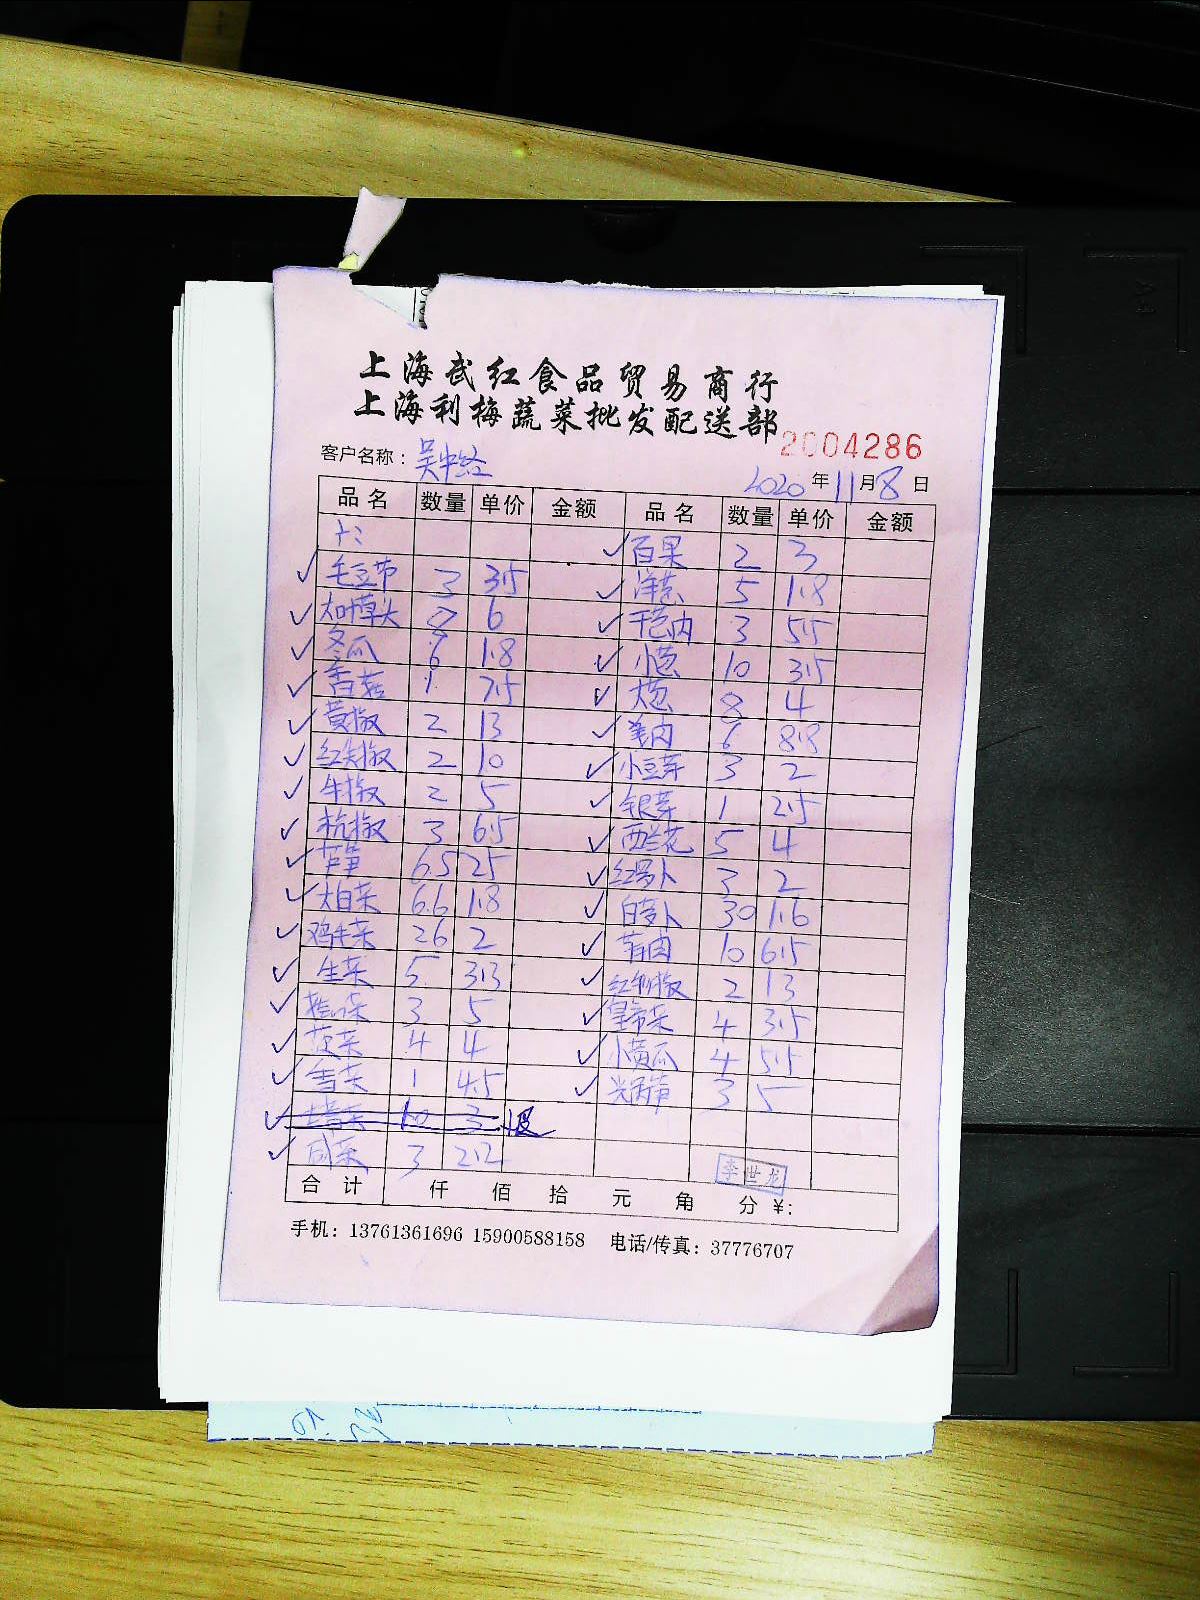 上海武红食品贸易商行
上海利梅蔬菜批发配送部
2004286
客户名称：吴中经
2020年11月8日
品名 数量 单价 金额 品名 数量 单价 金额
百果 2 3
毛豆节 3 3.5 洋葱 5 1.8
6 3 5.5
冬瓜 6 1.8 小葱 10 3.5
香菇 1 7.5 大葱 8 4
黄椒 2 13 羊肉 6 8.8
红尖椒 2 10 小豆芽 3 2
牛椒 2 5 银芽 1 2.5
杭椒 3 6.5 西兰花 5 4
6.5 25 红萝卜 3 2
大白菜 6.6 1.8 白萝卜 30 1.6
鸡毛菜 26 2 10 6.5
生菜 5 3.3 2 13
3 5 皇帝菜 4 3.5
4 4 小黄瓜 4 5.5
雪菜 1 4.5 3 5
10 3 退
咸菜 3 2.2
李世龙
合计 仟 佰 拾 元 角 分 ¥:
手机：13761361696 15900588158 电话/传真：37776707